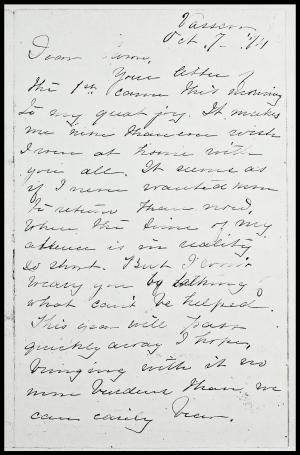 Vassar
Oct. 7- '71
Dear
Your letter of
the 1st came this morning
to my great joy. It makes
me more than ever wish
I were at home with
you all. It seems as
if I never wanted more
to return than now,
when the time of my
absence is in reality
so short. But I won't
weary you by talking
what can't be helped.
This year will pass
quickly away I hope,
bringing with it no
more burdens than we
can easily bear.